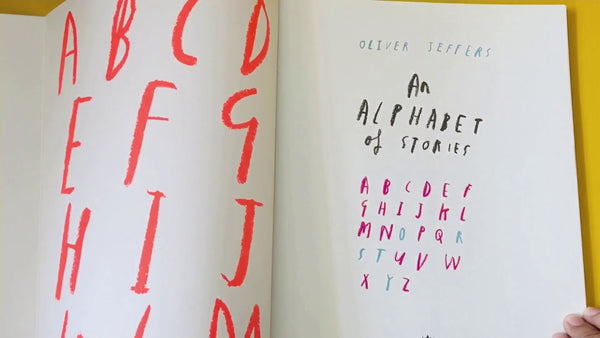 A B C D
E F G
H I J
OLIVER JEFFERS
An
ALPHABET
of STORIES
A B C D E F
G H I J K L
M N O P Q R
S T U V W
X Y Z